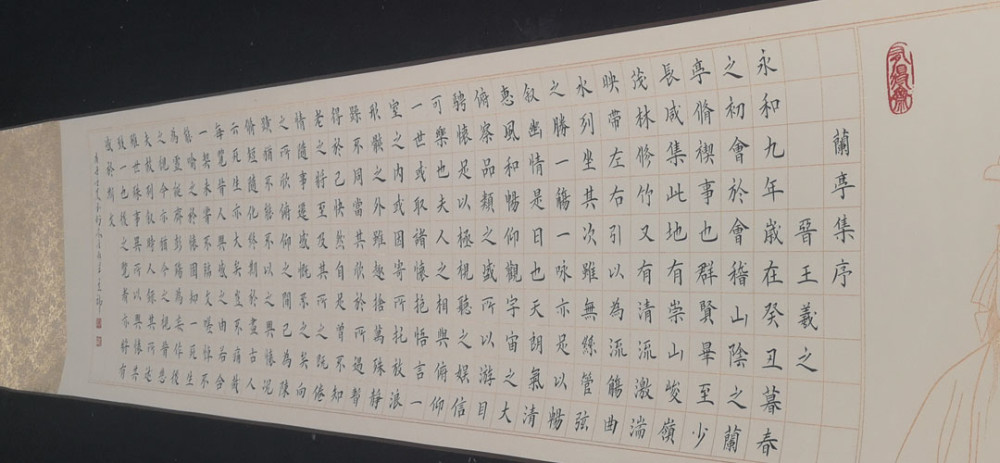 蘭亭集序
晉王羲之
永和九年歲在癸丑暮春
之初會於會稽山陰之蘭
亭脩禊事也群賢畢至少
長咸集此地有崇山峻嶺
茂林修竹又有清流激湍
映帶左右引以為流觴曲
水列坐其次雖無絲管弦
之勝一觴一咏亦足以暢
叙幽情是日也天朗氣清
惠風和暢仰觀宇宙之大
俯察品類之盛所以游目
騁懷足以極視聽之娛信
可樂也夫人之相與俯仰
一世或取諸懷抱悟言一
室之内或因寄所托放浪
形骸之外雖趣捨萬殊静
躁不同當其欣於所遇暫
得於己快然自足曾不知
老之將至及其所之既倦
情隨事遷感慨係之矣向
之所欣俯仰之間已為陳
跡猶不能不以之興懷況
脩短隨化終期於盡古人
云死生亦大矣豈不痛哉
每覽昔人興感之由若合
一契未嘗不臨文嗟悼不
能喻之於懷固知一死生
為虛誕齊彭殤為妄作後
之視今亦猶今之視昔悲
夫故列叙時人錄其所述
雖世殊事異所以興懷其
致一也後之覽者亦將有
感於斯文